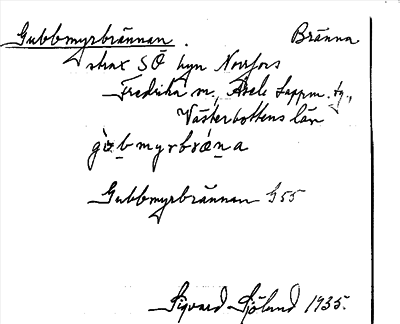 Gubbmyrbrännan. Bränna
strax SÖ byn Norrfors
Fredrika sn., Åsele Lappm. tg.,
Västerbottens län
Gubbmyrbrännan G55
Sigvard Sjölund 1935.